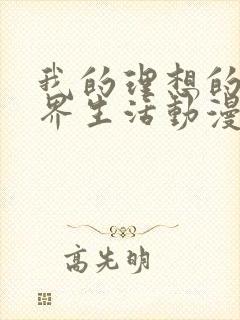 我的理想的
界生活動漫
高先明